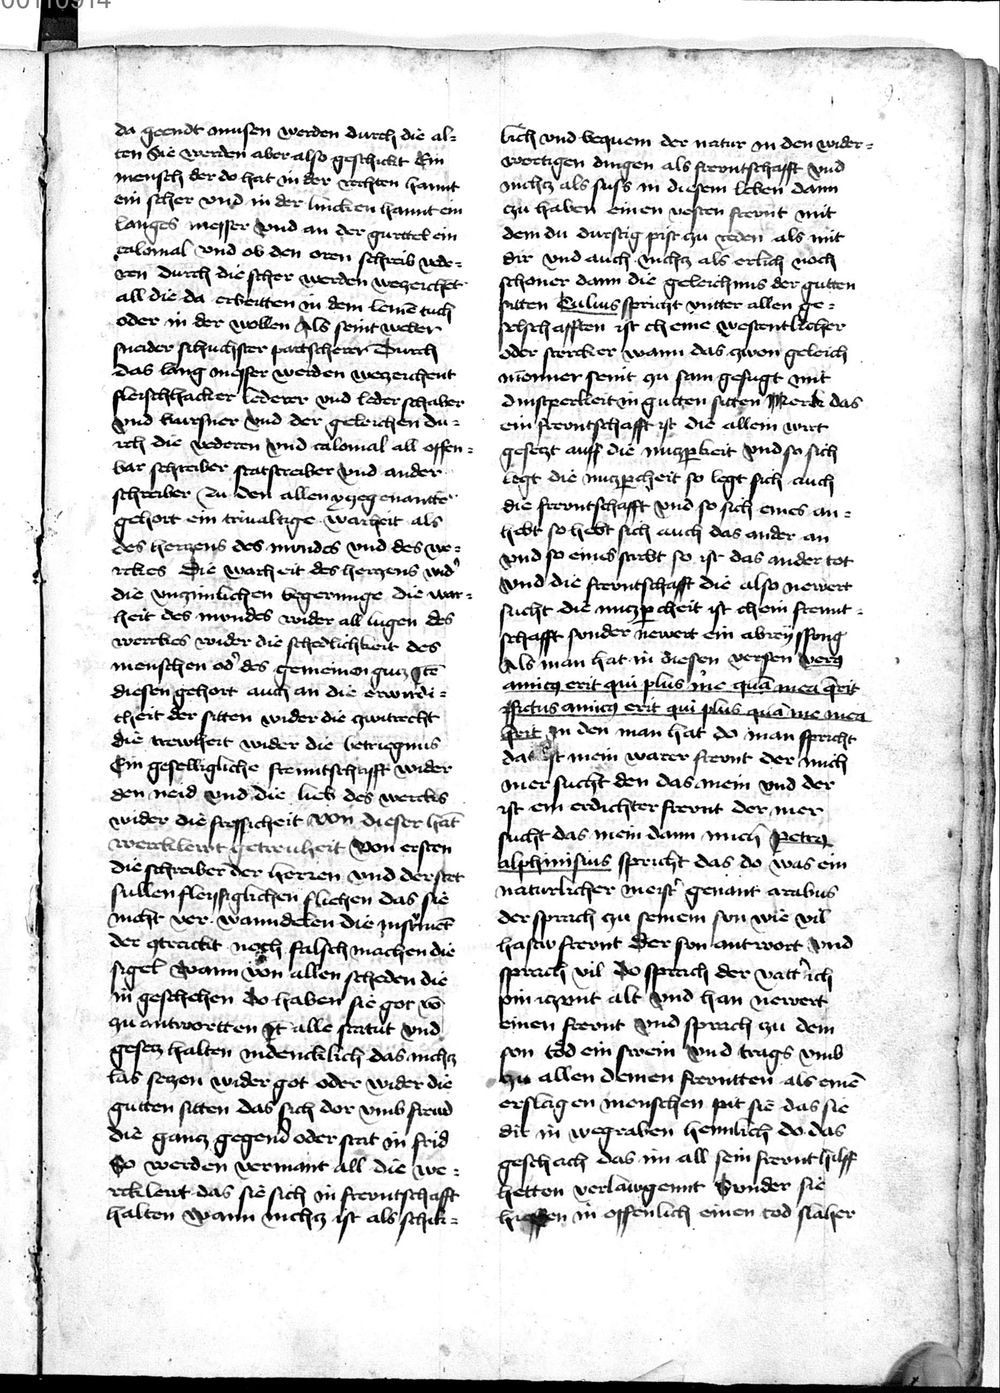 00110914
da geendt musen werden durch die al-
ten Sie werden aber also geschikt Ein
mensch der do hat in der rechten hannt
ein scher vnd in der lincken hannt ein
langes messer vnd an der gurttel ein
calomal vnd ob den oren schreib vede-
ren durch die scher werden wezeichet
all die da erbeitten in dem leinē tuch
oder in der wollen Als seint weber
sneider schuchster partscherer Durch
das lang messer werden wezeichent
fleischhacker lederer vnd leder schaber
vnd kursner vnd der geleichen du-
rch die vederen vnd calomal all offen-
bar schreiber statscreiber vnd ander
schreiber Zu den allen yczgenantē
gehort ein triualtige warheit als
des herczens des mundes vnd des we-
rckes Die warheit des herczens wid'
die vnzimlichen begerunge die war-
heit des mundes wider all lugen des
werckes wider die schedlichkeit des
menschen od' des gemeinen gucz
diesen gehort auch an die erwirdi-
cheit der sitten wider die zwitrecht
die trewheit wider die betriegnus
Ein geselligliche freuntschafft wider
den neid vnd die lieb des werckes
wider die frossicheit von dieser hat
wercklewt getreuheit Von ersten
die schreiber der herren vnd der stet
sullen fleissiglichen fliehen das sie
nicht ver wanndelen die
der noch falsch machen die
sigel Wann von allen scheden die
in geschehen do haben sie got
zu antwortten It alle statut vnd
gesecz halten indencklich das nichcz
las seczen wider got oder wider die
gutten sitten das sich dor vmb frewd
die gancz gegend oder stat in frid
So werden vermant all die we-
rcklewt das sie sich in frewntschafft
halten Wann nichcz ist als schik-
lich vnd bequem der natur in den wider-
wertigen dingen als frewntschafft vnd
nichcz als suss in diesem leben dann
czu haben einen vesten frewnt mit
dem du durstig pist czu reden als mit
dir vnd auch nichcz als erlich noch
schoner dann die geleichnus der gutten
sitten Tulius spricht vnter allen ge-
selschafften ist cheine westentlicher
oder stercker wann das czwen geleich
menner seint zu sam gefugt mit
dinstperkeit in gutten sitten Merck das
ein frewntschafft ist die allein wirt
geseczt auff die nuczperkeit vnd so sich
legt die nuczpercheit so legt sich auch
die frewntschafft vnd so sich eines an-
hebt so hebt sich auch das ander an
vnd so eines stirbt so ist das ander tot
vnd die frewntschafft die also newert
sucht die nuczpercheit ist chein frewnt-
schafft sonder newert ein
Als man hat in diesen versen Verus
amicus erit qui plus me quā mea querit
Fictus amicus erit qui plus quā me mea
querit In den man hat do man spricht
das ist mein warer frewnt der mich
mer sucht den das mein vnd der
ist ein erdichter frewnt der mer
sucht das mein dann mich Petrus
alphinisius spricht das do was ein
naturlicher meist' genant arabus
der sprach czu seinem son wie vil
hastw frewnt Der son antwort vnd
sprach vil Do sprach der vatt' ich
pin iczunt alt vnd han newert
einen frewnt vnd sprach czu dem
son tod ein swein vnd trags vmb
zu allen deinen frewntten als einē
erslagen menschen pit sie das sie
dir in wegraben heimlich do das
geschach das im all sein frewnt hilff
hetten verlawgent Sunder sie
hiessen in offenlich einen tod slaher